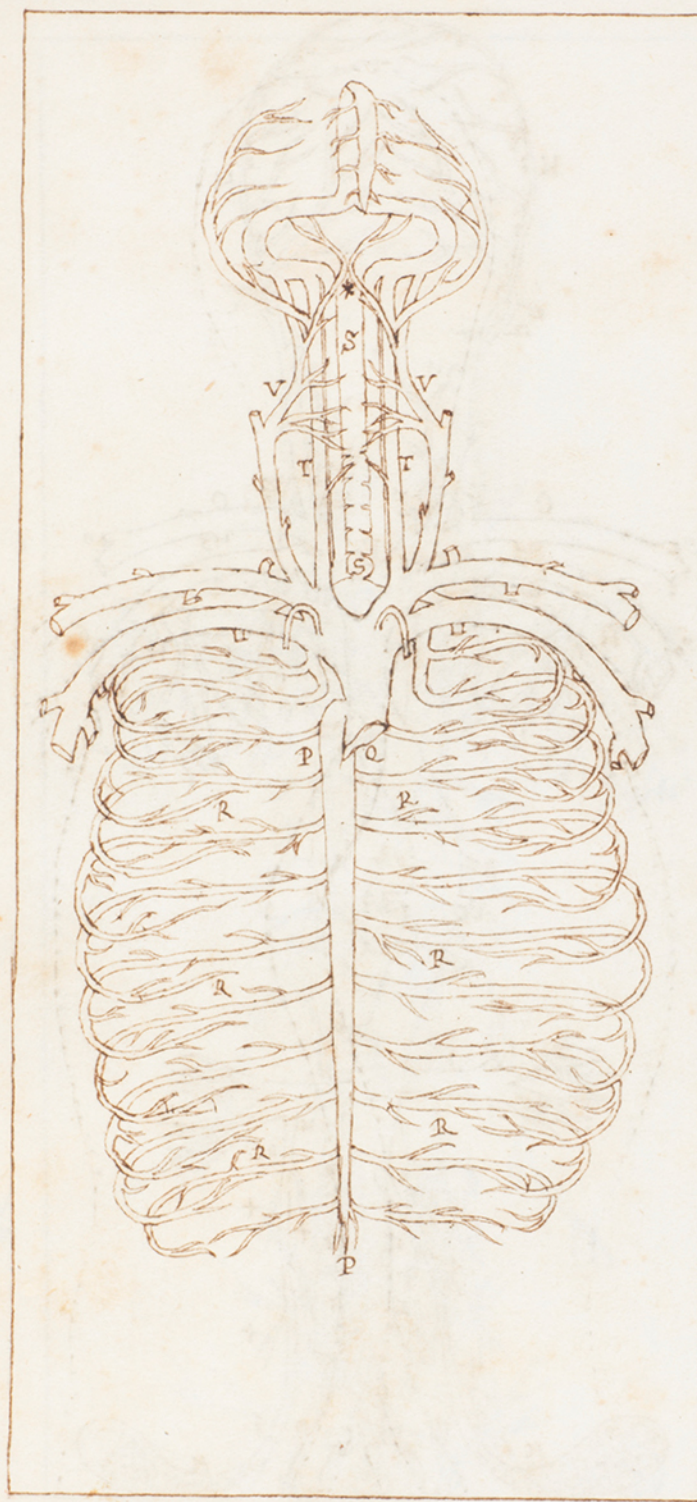 *
S
V V
T T
S
P Q
R R
R
R
R
R
P